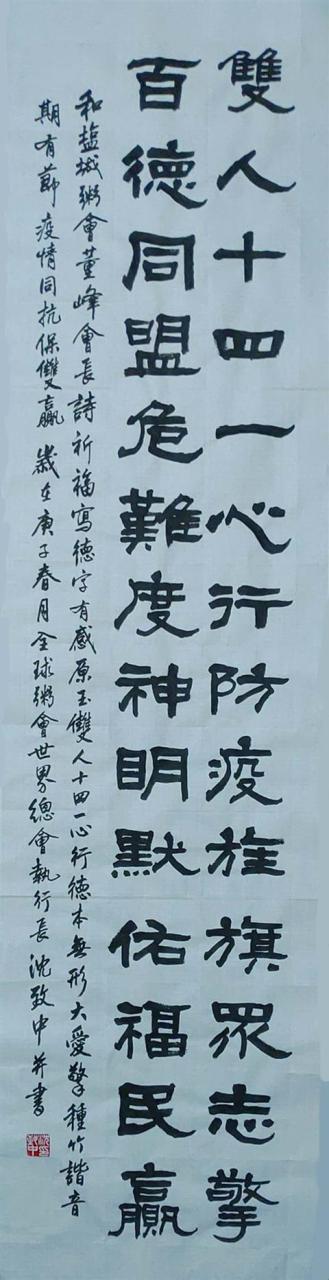 雙人十四一心行防疫旌旗眾志擎
百德同盟危難度神明默佑福民贏
和盐城粥會董峰會長詩祈福寫德字有感原玉雙人十四一心行德本無形大愛擎種竹諧音
期有節疫情同抗保雙贏 歲在庚子春月全球粥會世界總會執行長沈致中并書